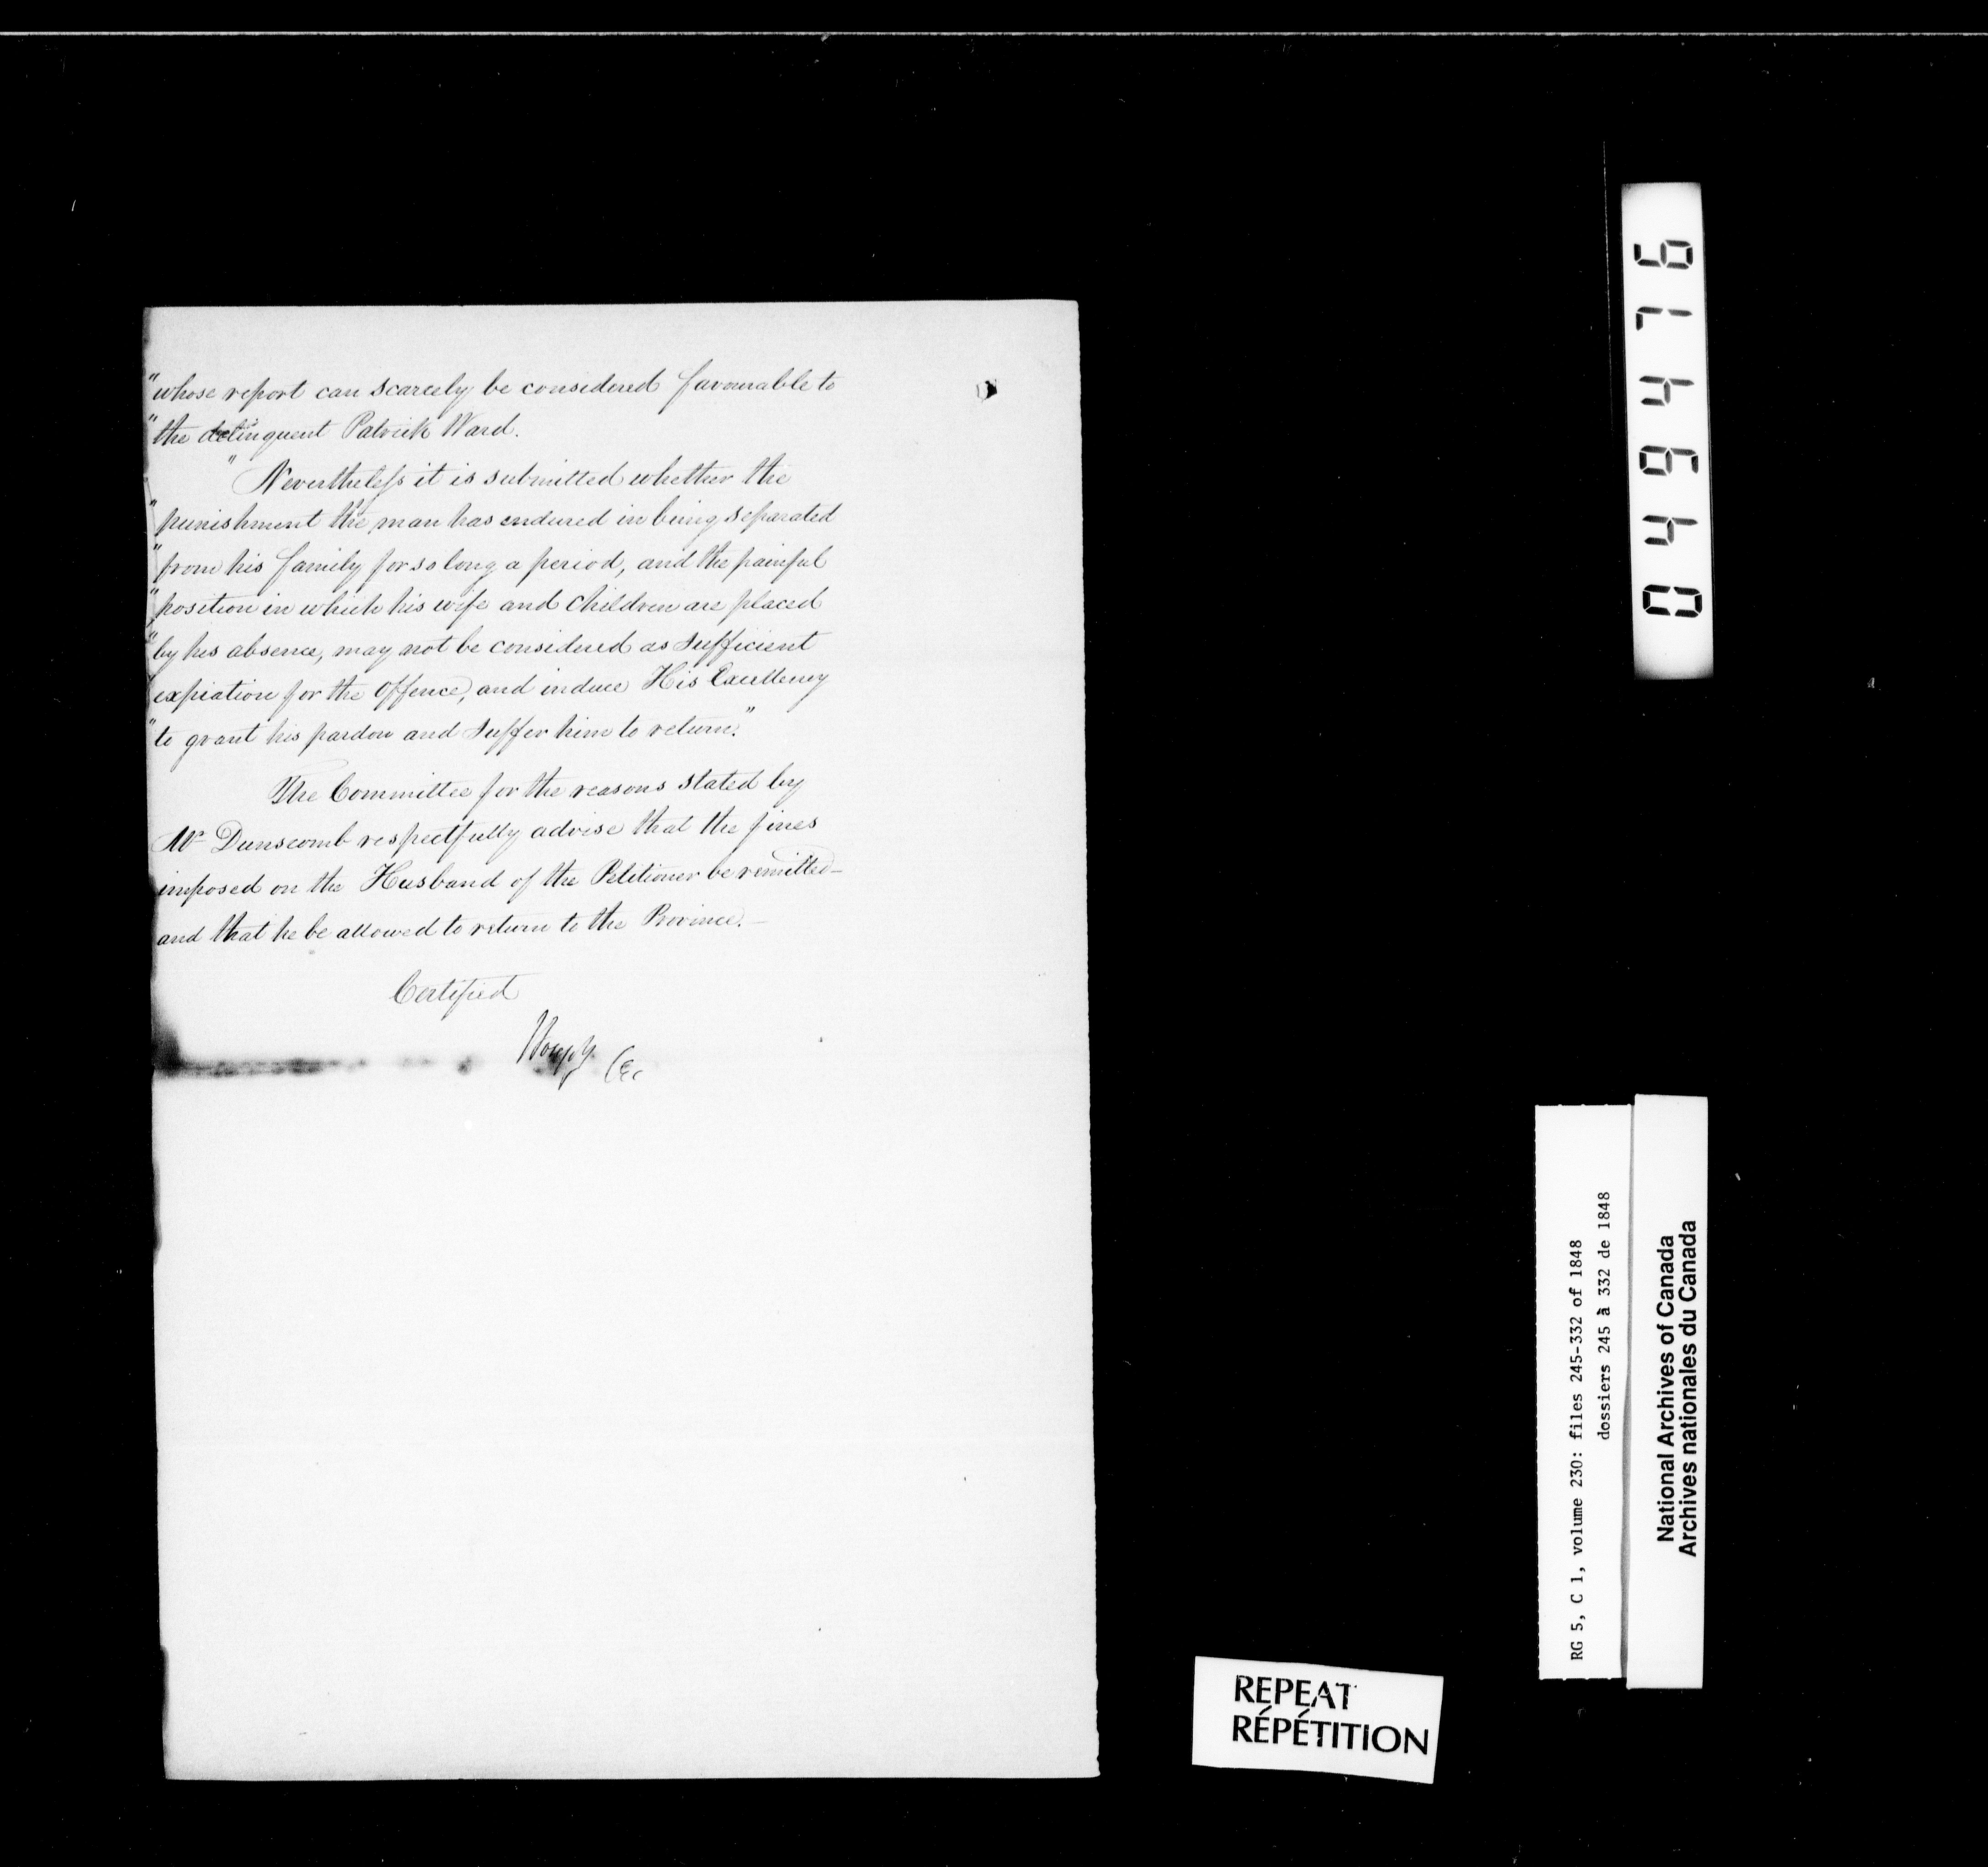 "whose report can scarcely be considered favourable to
"the delinquent Patrick Ward.
" Nevertheless it is submitted whether the
"punishment the man has endured in being separated
"from his family for so long a period, and the painful
"position in which his wife and children are placed
"by his absence, may not be considered as sufficient
"expiation for the offence, and induce His Excellency
"to grant his pardon and suffer him to return."
The Committee for the reasons stated by
Mr Dunscomb respectfully advise that the fines
imposed on the Husband of the Petitioner be remitted–
and that he be allowed to return to the Province.–
Certified
049476
RG 5, C 1, volume 230: files 245-332 of 1848
dossiers 245 à 332 de 1848
National Archives of Canada
Archives nationales du Canada
REPEAT
RÉPÉTITION